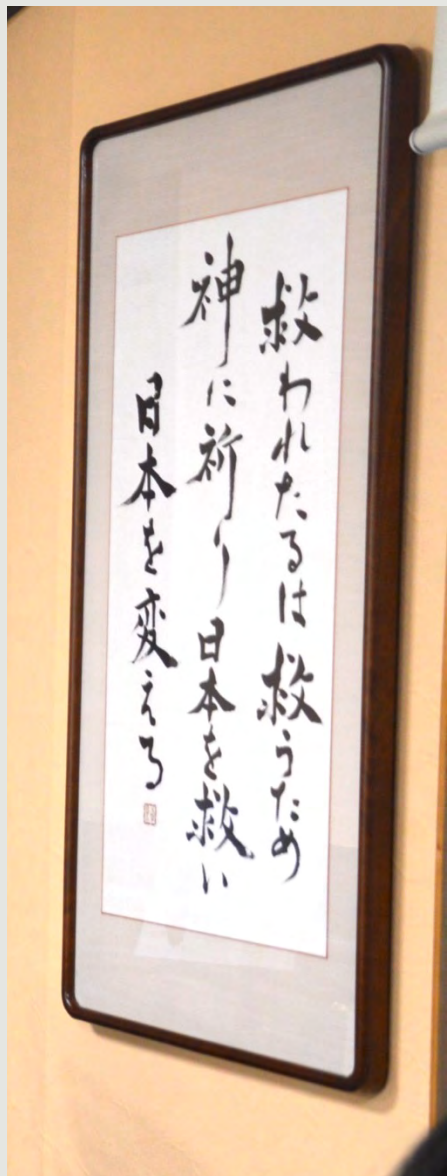 救われたるは救うため
神に祈り日本を救い
日本を変える